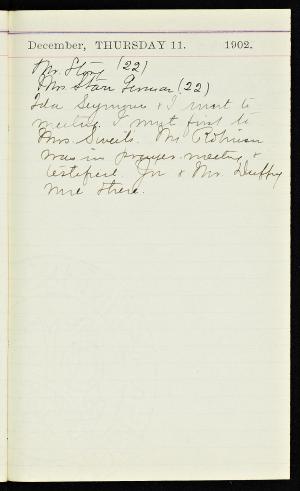 December, THURSDAY 11. 1902.
Mr. Story (22)
Mrs Starr (22)
Ida Seymour & I went to
meeting. I went first to
Mrs. Sweets. Mr Robinson
was in prayer meeting &
testified. Jn & Mrs. Duffy
were there.